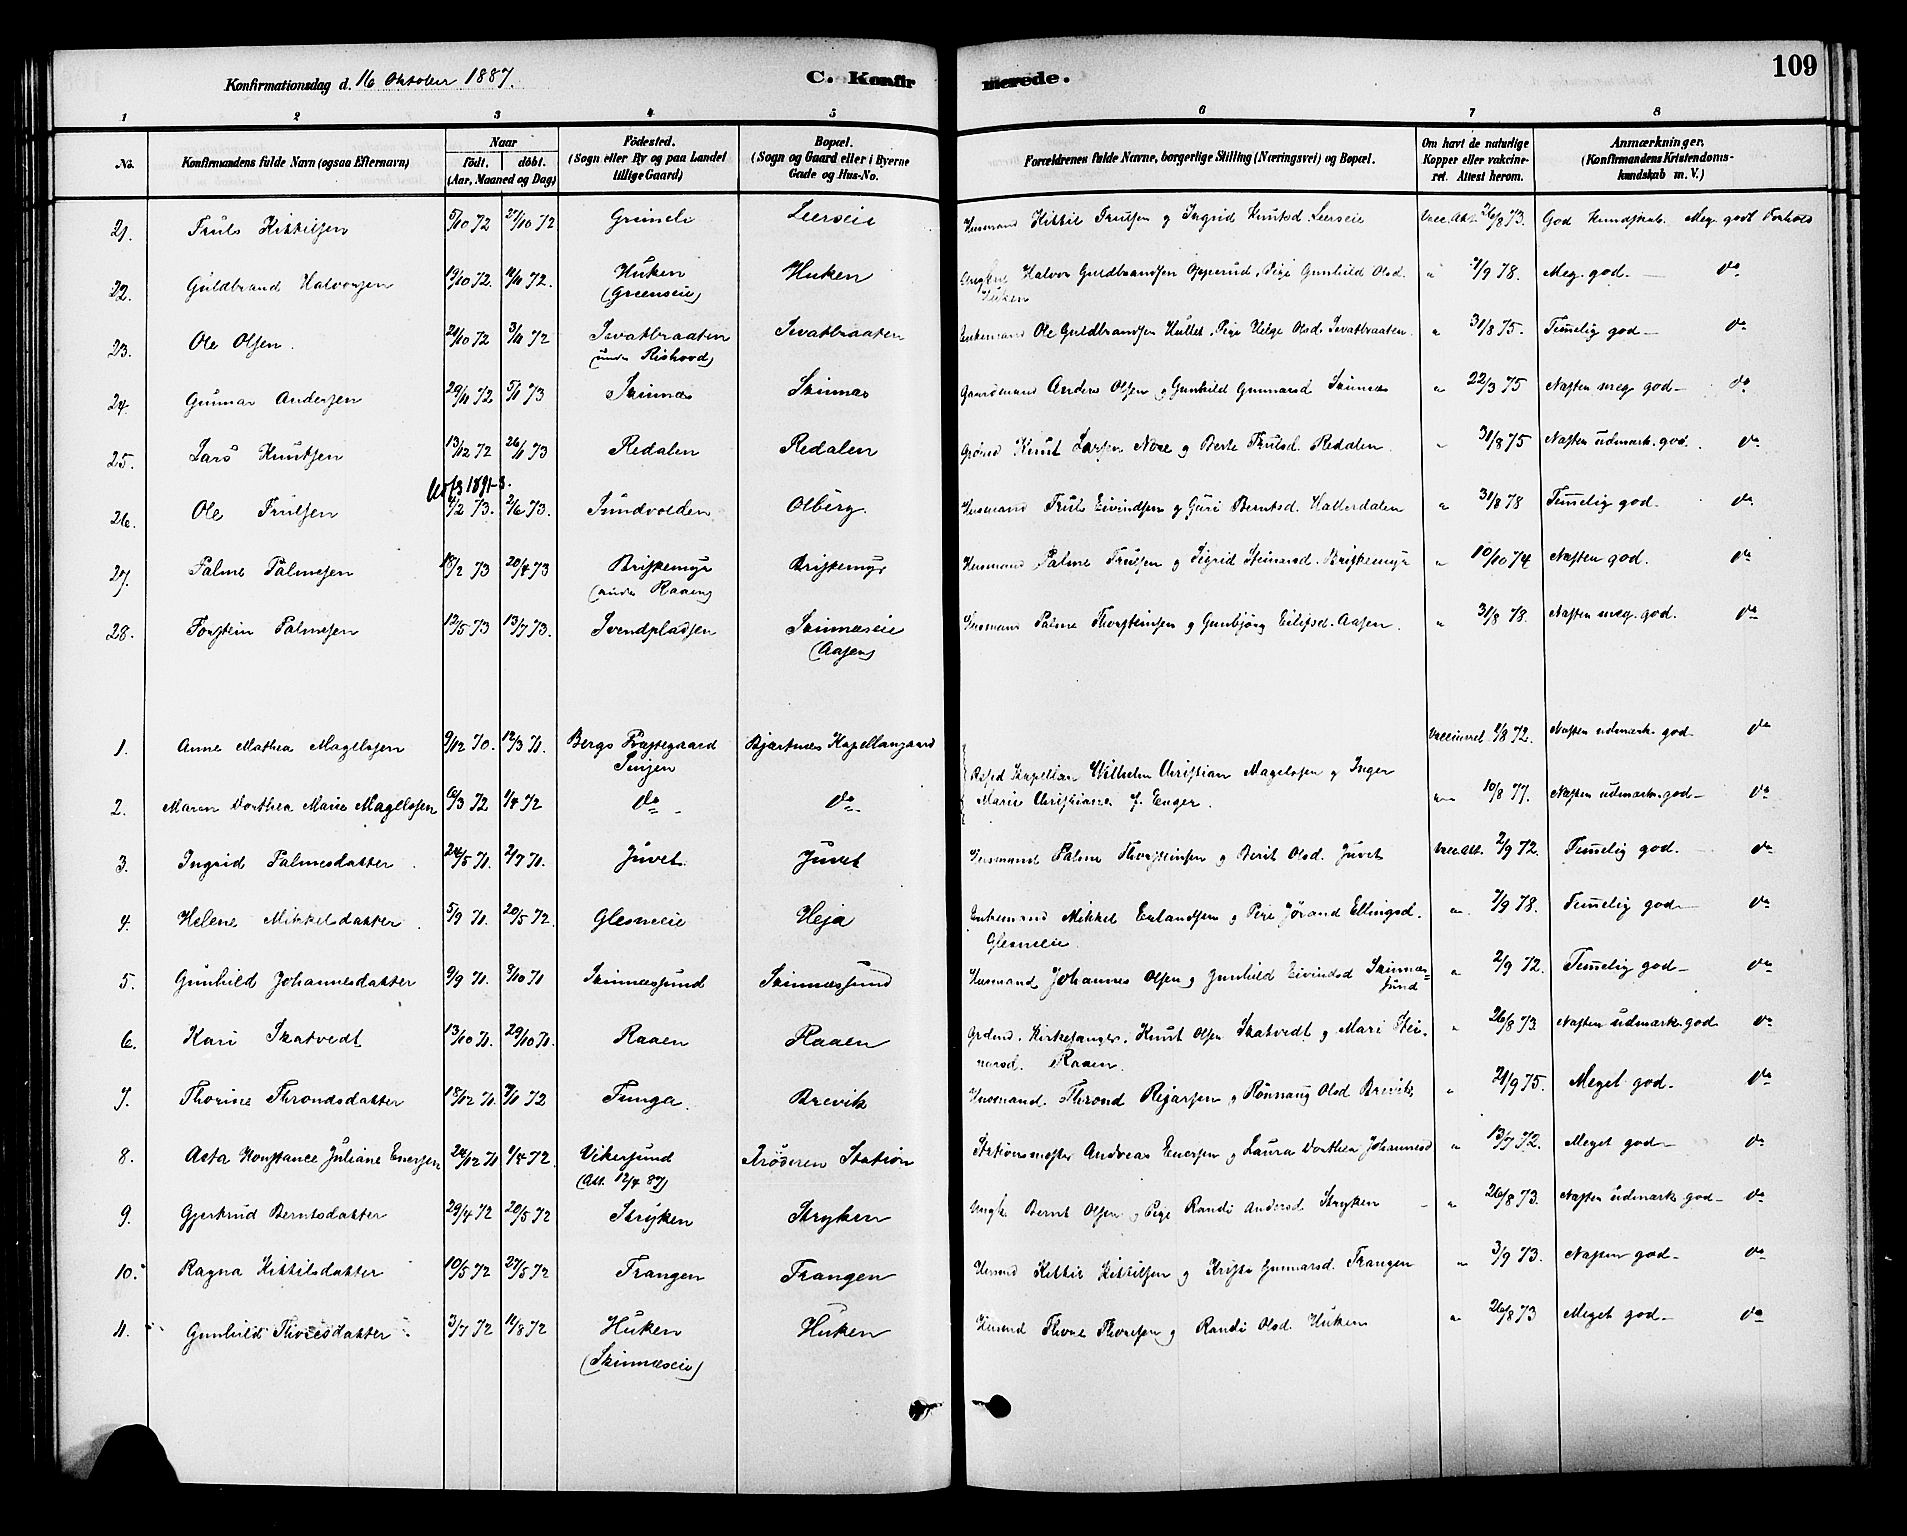 109
Konfirmationsdag d. 16 Oktober 1887.
C. Konfirmerede.
1 2 3 4 5 6 7 8
No. Konfirmandens fulde Navn (ogsaa Efternavn) Naar födt. döbt. (Aar, Maaned og Dag) Födested. (Sogn eller By og paa Landet tillige Gaard) Bopæl. (Sogn og Gaard eller i Byerne Gade og Hus-No. Forældrenes fulde Navne, borgerlige Stilling (Næringsvei) og Bopæl. Om havt de naturlige Kopper eller vakcineret. Attest herom. Anmærkninger. (Konfirmandens Kristendomskundskab m. V.)
21. Truls Kittilsen 5/10 72 27/10 72 Grimeli Leerseie Husmand Kittil Trulsen og Ingrid Knutsd. Leerseie Vacc. Att. 26/8 73. God Kundskab. Meg. godt Forhold
22. Guldbrand Halvorsen 19/10 72. 72. Huken (Greenseie) Huken Ungkar Halvor Guldbrandsen Opperud, Pige Gunhild Olsd. Huken " /9 78. Meg. god. do
23. Ole Olsen. 21/10 72 3/11 72 Sevatbraaten (under Rishovd) Sevatbraaten Enkemand Ole Guldbrandsen Hullet, Pige Helge Olsd. Sevatbraaten " 31/8 75. Temelig god - do
24. Gunnar Andersen 29/11 72 5/1 73 Skinnæs Skinnæs Gaardmand Anders Olsen og Gunhild Gunnarsd. Skinnæs " 22/3 75 Næsten meg. god - do
25. Lars Knutsen 13/12 72 26/1 73 Redalen Redalen Grdmd Knut Larsen Nore og Berte Trulsd. Redalen " 31/8 75 Næsten udmærk. god. do
Utfl. 1891-3.
26. Ole Trulsen /2 73. 2/6 73. Sundvolden Olberg. Husmand Truls Eivindsen og Guri Berntsd. Hallerdalen " 31/8 78 Temelig god. do
27. Palme Palmesen 18/2 73 20/4 73 Briskemyr (under Raaen) Briskemyr Husmand Palme Trulsen og Sigrid Steinarsd. Briskemyr " 10/10 74 Næsten god. do
28. Torstein Palmesen 12/5 73 13/7 73. Svendpladsen Skinnæseie (Aasen) Husmand Palme Thorsteinsen og Gunbjörg Eilefsd. Aasen. " 31/8 78. Næsten meg. god. do
1. Anne Mathea Magelssen 9/12 70. 12/3 71. Bergs Præstegaard Senjen Bjertnæs Kapellangaard Vaccineret 8/8 72. Næsten udmærk. god - do
Resid Kapellan Wilhelm Christian Magelssen og Inger Marie Christiane f. Enger.
2. Maren Dorthea Marie Magelssen 6/3 72 1/4 72 do do 10/8 77. Næsten udmærk. god - do
3. Ingrid Palmesdatter 24/5 71. 2/7 71. Juvet. Juvet Husmand Palme Thorsteinsen og Berit Olsd. Juvet Vacc. Att. 2/9 72. Temelig god. do
4. Helene Mikkelsdatter 5/9 71. 20/5 72. Glesneeie Heja Enkemand Mikkel Erlandsen og Pige Jörand Ellingsd. Glesneeie. " /9 78. Temelig god - do
5. Gunhild Johannesdatter 9/9 71. /10 71 Skinnæssund Skinnæssund Husmand Johannes Olsen og Gunhild Eivindsd Skinnæssund " 2/9 72. Temelig god - do
6. Kari Skatvedt 13/10 71. 29/10 71. Raaen Raaen Grdmd. Kirkesanger. Knut Olsen Skatvedt og Mari Steinarsd. Raaen. " 26/8 73. Næsten udmærk. god do
7. Thorine Throndsdatter 18/12 71. 72 Tunga. Brevik Husmand. Thrond Reiarsen og Rönnaug Olsd Brevik " 21/9 75. Meget god. do
8. Asta Konstance Juliane Enersen 24/12 71 1/4 72. Vikersund (Att. 12/4 87) Kröderen Station Stationsmester Andreas Enersen og Laura Dorthea Johannesd " 13/7 72. Meget god - do
9. Gjertrud Berntsdatter 29/4 72 20/5 72 Stryken Stryken Ungk. Bernt Olsen og Pige Randi Andersd. Stryken " 26/8 73. Næsten udmærk. god - do
10. Ragna Kittilsdatter 10/5 72 27/5 72 Trangen Trangen Husmd Kittil Kittilsen og Kristi Gunnarsd. Trangen " 3/9 73. Næsten god - do
11. Gunhild Thoresdatter 3/7 72 11/8 72 Huken (Skinnæseie) Huken Husmd Thore Thoresen og Randi Olsd. Huken " 26/8 73 Meget god - do